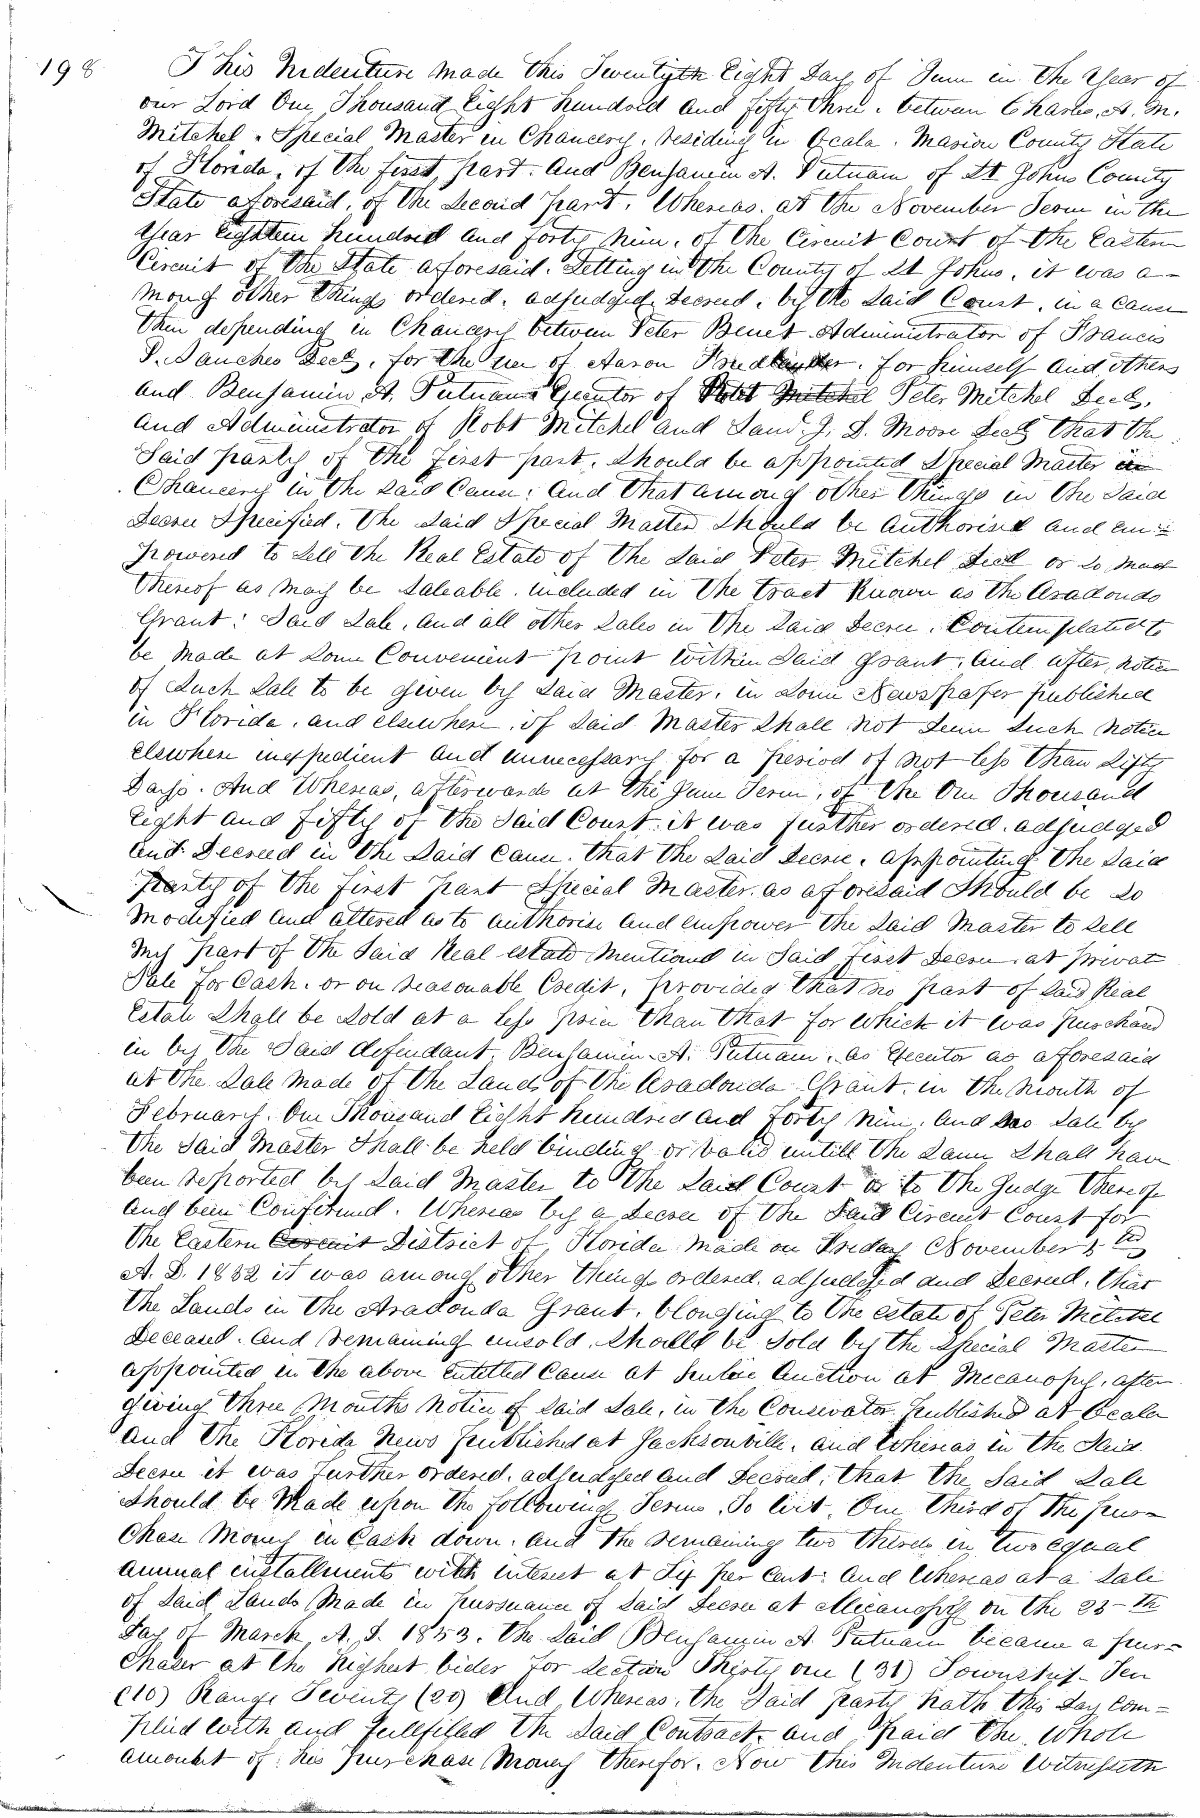 198
This Indenture made this Twentyth Eight Day of June in the Year of
our Lord One Thousand Eight hundred and fifty three. between Charles. A. M.
Mitchel. Special Master in Chancery. residing in Ocala. Marion County State
of Florida. of the first part. And Benjamin A. Putnam of St. Johns County
State aforesaid. of the Second part. Whereas. at the November Term in the
Year Eighteen hundred and forty nine. of the Circuit Court of the Eastern
Circuit of the State aforesaid. Setting in the County of St Johns. it was a-
mong other things ordered. adjudged Decreed. by the Said Court. in a cause
then depending in Chancery between Peter Benet Administrator of Francis
P. Sanches Decd. for the use of Aaron. for himself and others
and Benjamin A. Putnam Executor of Robt Mitchel Peter Mitchel Decd.
And Administrator of Robt Mitchel and Saml J. S. Moore Decd that the
Said party of the first part. Should be appointed Special Master in
Chancery in the Said Cause: And that among other things in the Said
Decree Specified. the Said Special Master Should be Authorised and em=
powered to Sell the Real Estate of the Said Peter Mitchel Decd or so much
thereof as may be Saleable. included in the tract Known as the Aradondo
Grant: Said Sale. And all other Sales in the Said Decree. Contemplated to
be Made at Some Convenient point within Said Grant. And after notice
of Such Sale to be given by Said Master. in Some Newspaper published
in Florida. and elsewhere. if Said Master Shall not deem Such Notice
elsewhere inexpedient and unnecessary for a period of not less than Sixty
Days. And Whereas, afterwards at the June Term. of the One Thousand
Eight and Fifty of the Said Court. it was further ordered. adjudged
and Decreed in the Said Cause. that the Said Decree. appointing the Said
Party of the first part Special Master as aforesaid Should be So
Modified and altered as to authorise and empower the Said Master to Sell
any part of the Said Real estate Mentioned in Said first Decree. at private
Sale for Cash. or on reasonable Credit. provided that no part of Said Real
Estate Shall be Sold at a less price than that for which it was purchased
in by the Said defendant. Benjamin. A. Putnam. as Executor as aforesaid
at the Sale Made of the Lands of the Aradonda Grant. in the Month of
February. One Thousand Eight hundred and forty nine. And no Sale by
the Said Master Shall be held binding or valid untill the Same Shall have
been reported by Said Master to the Said Court or to the Judge thereof
and been Confirmed. Whereas by a Decree of the Said Circuit Court for
the Eastern Circuit District of Florida Made on Friday November 5th
A. D. 1852 it was among other things ordered. adjudged and Decreed. that
the Lands in the Aradonda Grant. blonging to the estate of Peter Mitchel
Deceased. and remaining unsold. Should be Sold by the Special Master
appointed in the above entitled Cause at public Auction at Mecanopy, after
giving three Months notice of Said Sale. in the Consevator Published at Ocala
and the Florida News published at Jacksonville. and Whereas in the Said
Decree it was further ordered. adjudged and Decreed. that the Said Sale
Should be Made upon the following Terms. To wit. One third of the pur-
chase Money in Cash down. and the remaining two thirds in two equal
annual installments with interest at Six per Cent: And Whereas at a Sale
of Said Lands Made in pursuance of Said Decree at Micanopy on the 25-th
Day of March A. D. 1853. the Said Benjamin A. Putnam became a pur=
chaser at the highest bider for Section Thirty one (31) Township Ten
(10) Range Twenty (20) And Whereas. the Said party hath this day com=
plied with and fullfilled the Said Contract. and paid the. Whole
amount of his purchase Money therefor. Now this Indenture Witnesseth